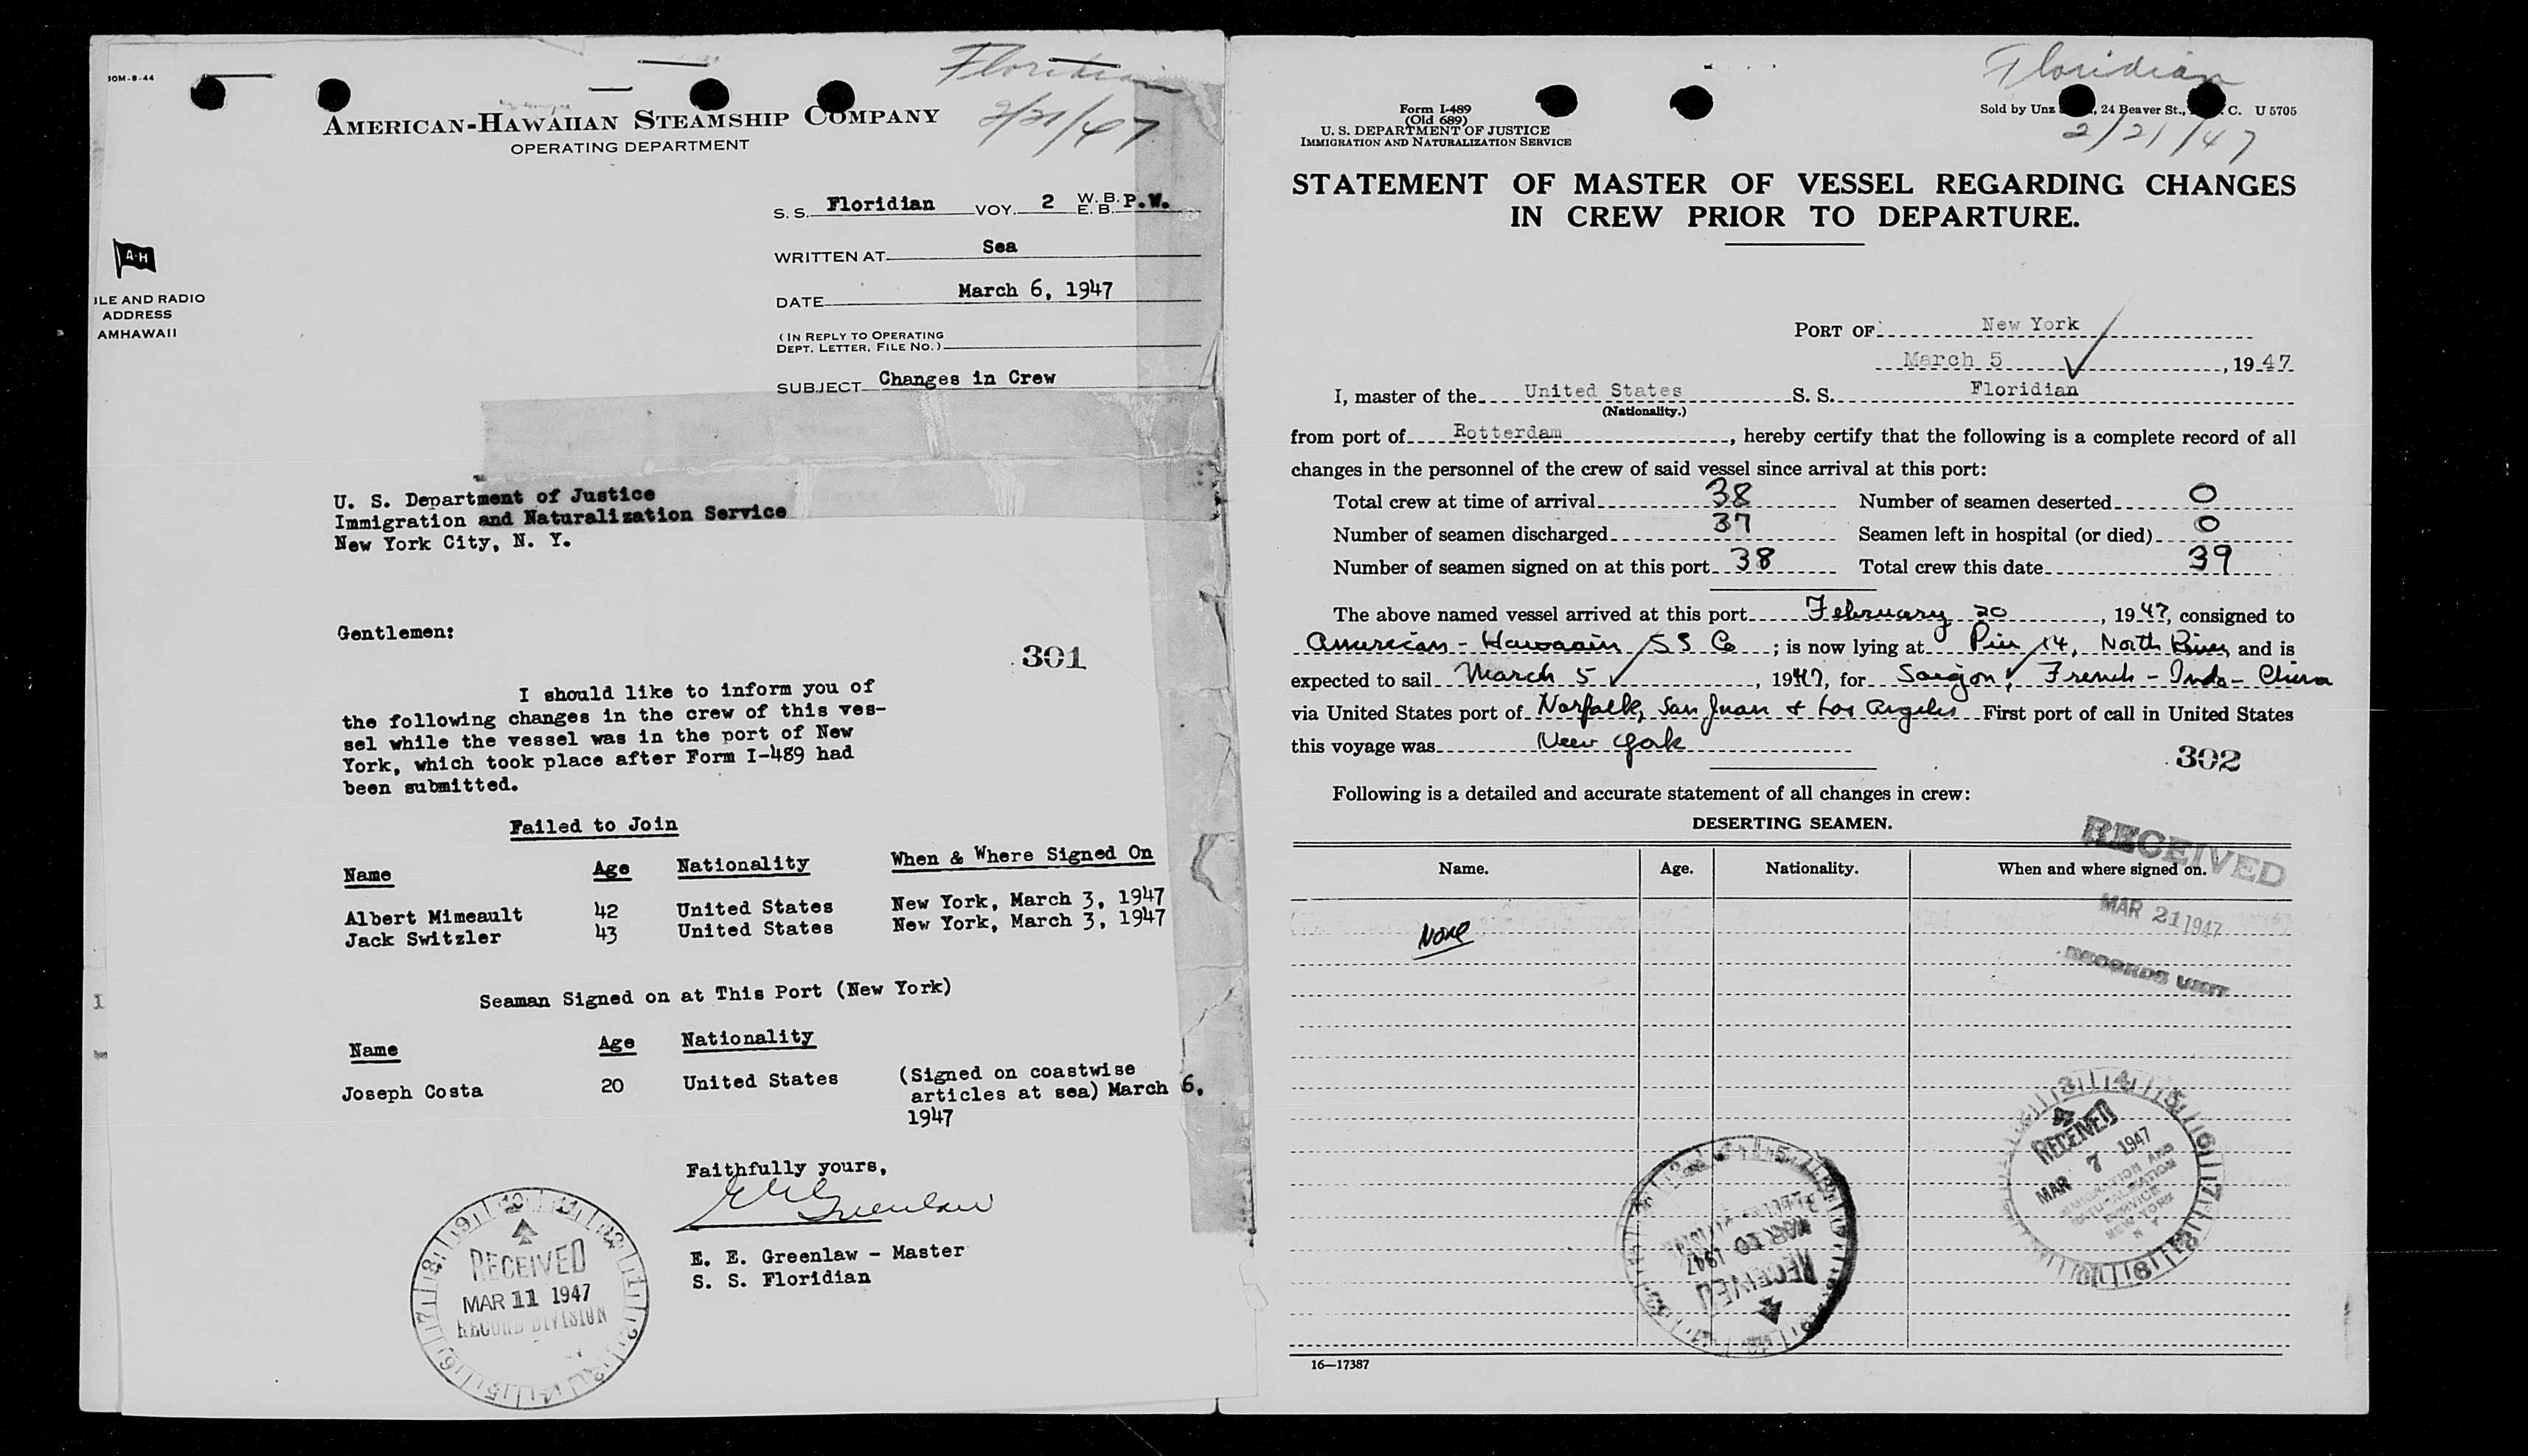 50M-8-44
Floridian
2/21/47
AMERICAN-HAWAIIAN STEAMSHIP COMPANY
OPERATING DEPARTMENT
S. S. Floridian VOY. 2 W. B. E. B. P.W.
WRITTEN AT Sea
A-H
DATE March 6, 1947
BLE AND RADIO
ADDRESS
AMHAWAII
(IN REPLY TO OPERATING
DEPT. LETTER, FILE NO.)
SUBJECT Changes in Crew
U. S. Department of Justice
Immigration and Naturalization Service
New York City, N. Y.
Gentlemen:
301
I should like to inform you of
the following changes in the crew of this ves-
sel while the vessel was in the port of New
York, which took place after Form I-489 had
been submitted.
Failed to Join
Name Age Nationality When & Where Signed On
Albert Mimeault 42 United States New York, March 3, 1947
Jack Switzler 43 United States New York, March 3, 1947
Seaman Signed on at This Port (New York)
Name Age Nationality
Joseph Costa 20 United States (Signed on coastwise
articles at sea) March 6,
1947
Faithfully yours,
E E Greenlaw
E. E. Greenlaw - Master
S. S. Floridian
RECEIVED
MAR 11 1947
RECORD DIVISION
Floridian
2/21/47
Form I-489
(Old 689)
U. S. DEPARTMENT OF JUSTICE
IMMIGRATION AND NATURALIZATION SERVICE
Sold by Unz , 24 Beaver St., C. U 5705
STATEMENT OF MASTER OF VESSEL REGARDING CHANGES
IN CREW PRIOR TO DEPARTURE.
PORT OF New York
March 5, 1947
I, master of the United States S. S. Floridian
(Nationality.)
from port of Rotterdam, hereby certify that the following is a complete record of all
changes in the personnel of the crew of said vessel since arrival at this port:
Total crew at time of arrival 38 Number of seamen deserted 0
Number of seamen discharged 37 Seamen left in hospital (or died) 0
Number of seamen signed on at this port 38 Total crew this date 39
The above named vessel arrived at this port February 20, 1947, consigned to
American-Hawaain SS Co; is now lying at Pier 14, North River and is
expected to sail March 5, 1947, for Saigon, French-Indo-China
via United States port of Norfolk, San Juan & Los Angeles First port of call in United States
this voyage was New York
302
Following is a detailed and accurate statement of all changes in crew:
DESERTING SEAMEN.
Name. Age. Nationality. When and where signed on.
None
RECEIVED
MAR 21 1947
RECORDS UNIT
RECEIVED
MAR 7 1947
IMMIGRATION AND
NATURALIZATION
SERVICE
NEW YORK
N Y
RECEIVED
MAR 10 1947
16—17387